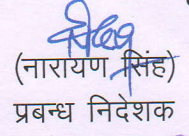 (नारायण सिंह)
प्रबन्ध निदेशक